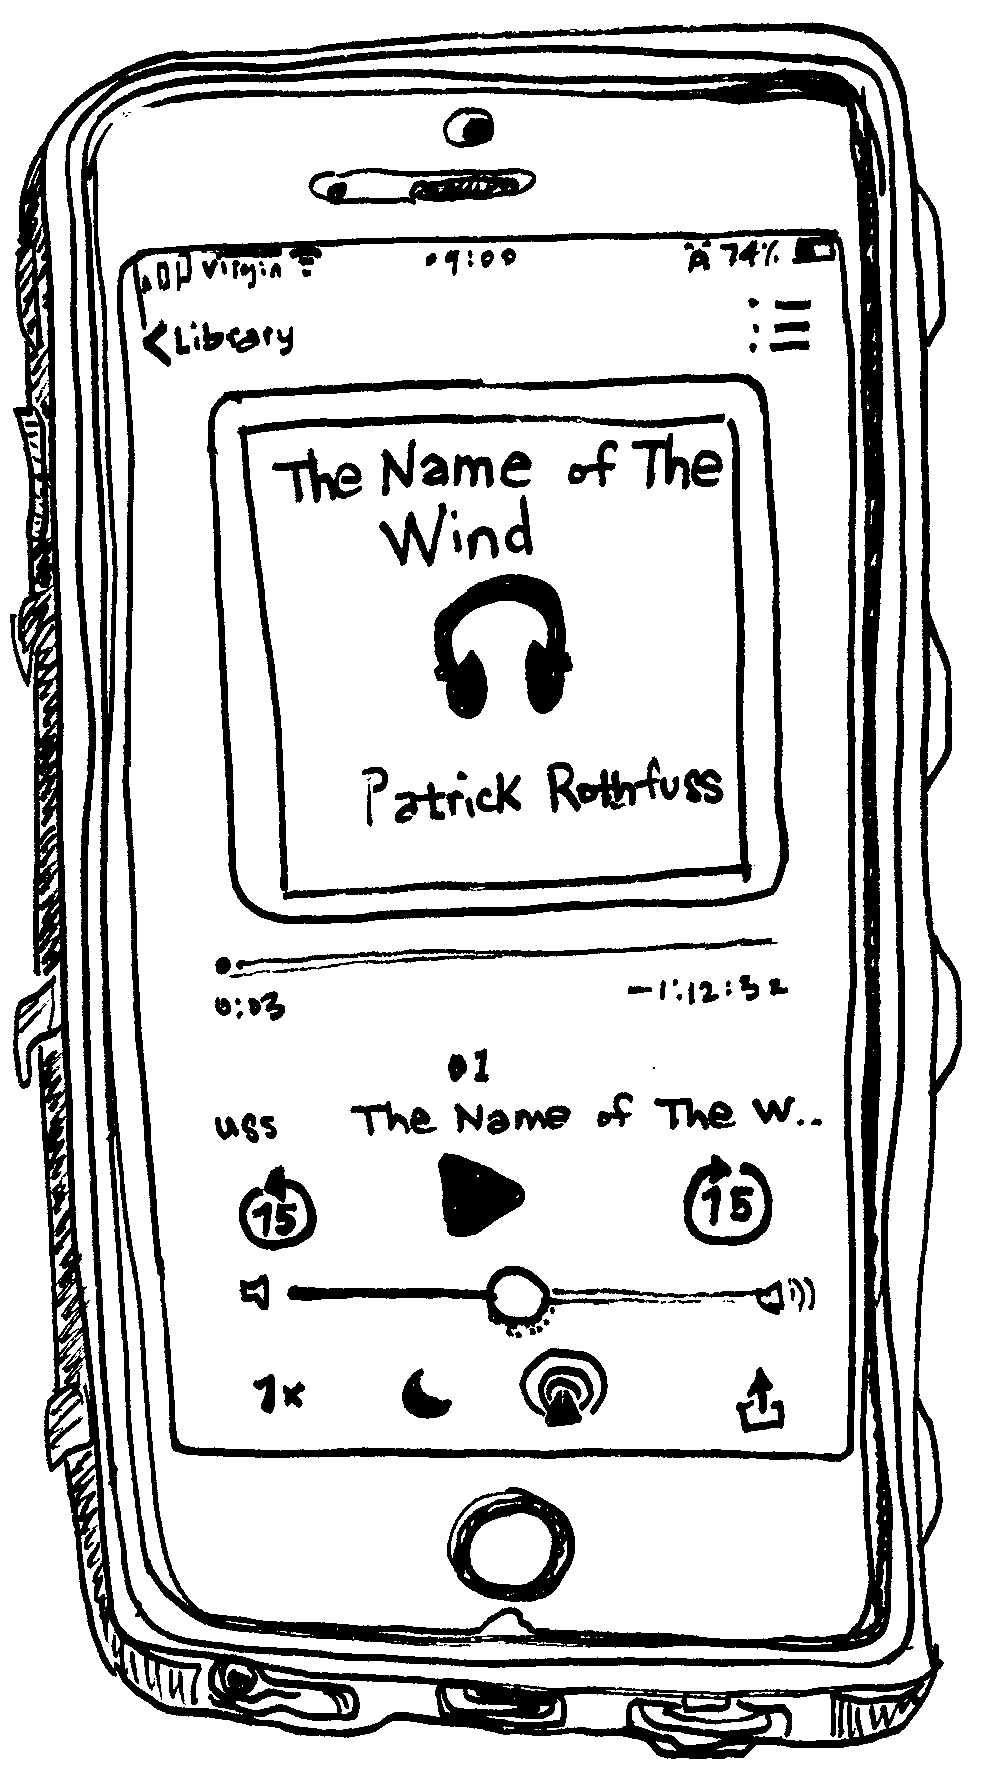 Virgin 09:00 74%
Library
The Name of The
Wind
Patrick Rothfuss
0:03 -1:12:52
01
uss The Name of The W..
15 15
1x